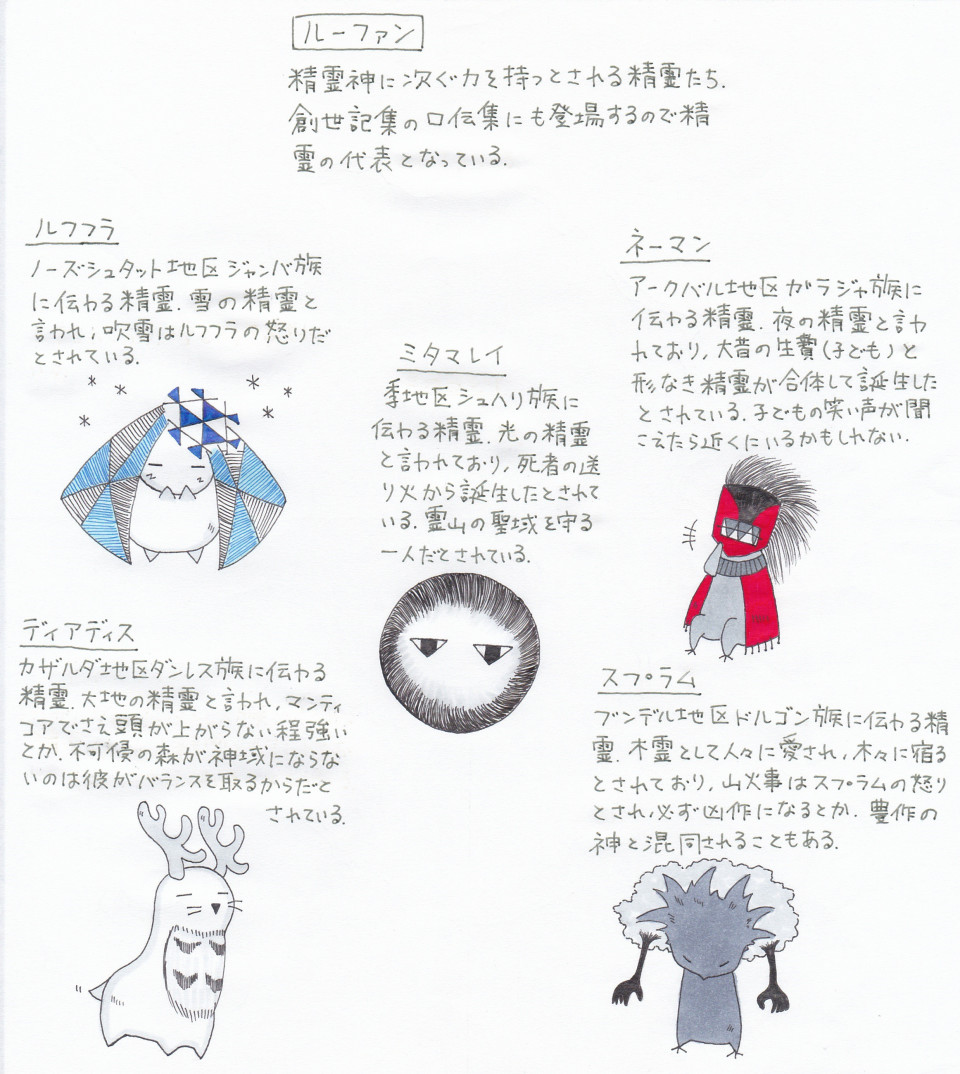 ルーファン
精霊神に次ぐ力を持つとされる精霊たち.
創世記集の口伝集にも登場するので精
霊の代表となっている.
ルフフラ
ノーズシュタット地区ジャンバ族
に伝わる精霊.雪の精霊と
言われ,吹雪はルフフラの怒りだ
とされている.
ネーマン
アークバル地区ガラジャ族に
伝わる精霊.夜の精霊と言わ
れており,大昔の生贄(子ども)と
形なき精霊が合体して誕生した
とされている.子どもの笑い声が聞
こえたら近くにいるかもしれない.
ミタマレイ
季地区シュハリ族に
伝わる精霊.光の精霊
と言われており,死者の送
り火から誕生したとされて
いる.霊山の聖域を守る
一人だとされている.
ディアディス
カザルダ地区ダンレス族に伝わる
精霊.大地の精霊と言われ,マンティ
コアでさえ頭が上がらない程強い
とか.不可侵の森が神域にならな
いのは彼がバランスを取るからだと
されている.
スプラム
ブンデル地区ドルゴン族に伝わる精
霊.木霊として人々に愛され,木々に宿る
とされており,山火事はスプラムの怒り
とされ必ず凶作になるとか.豊作の
神と混同されることもある.